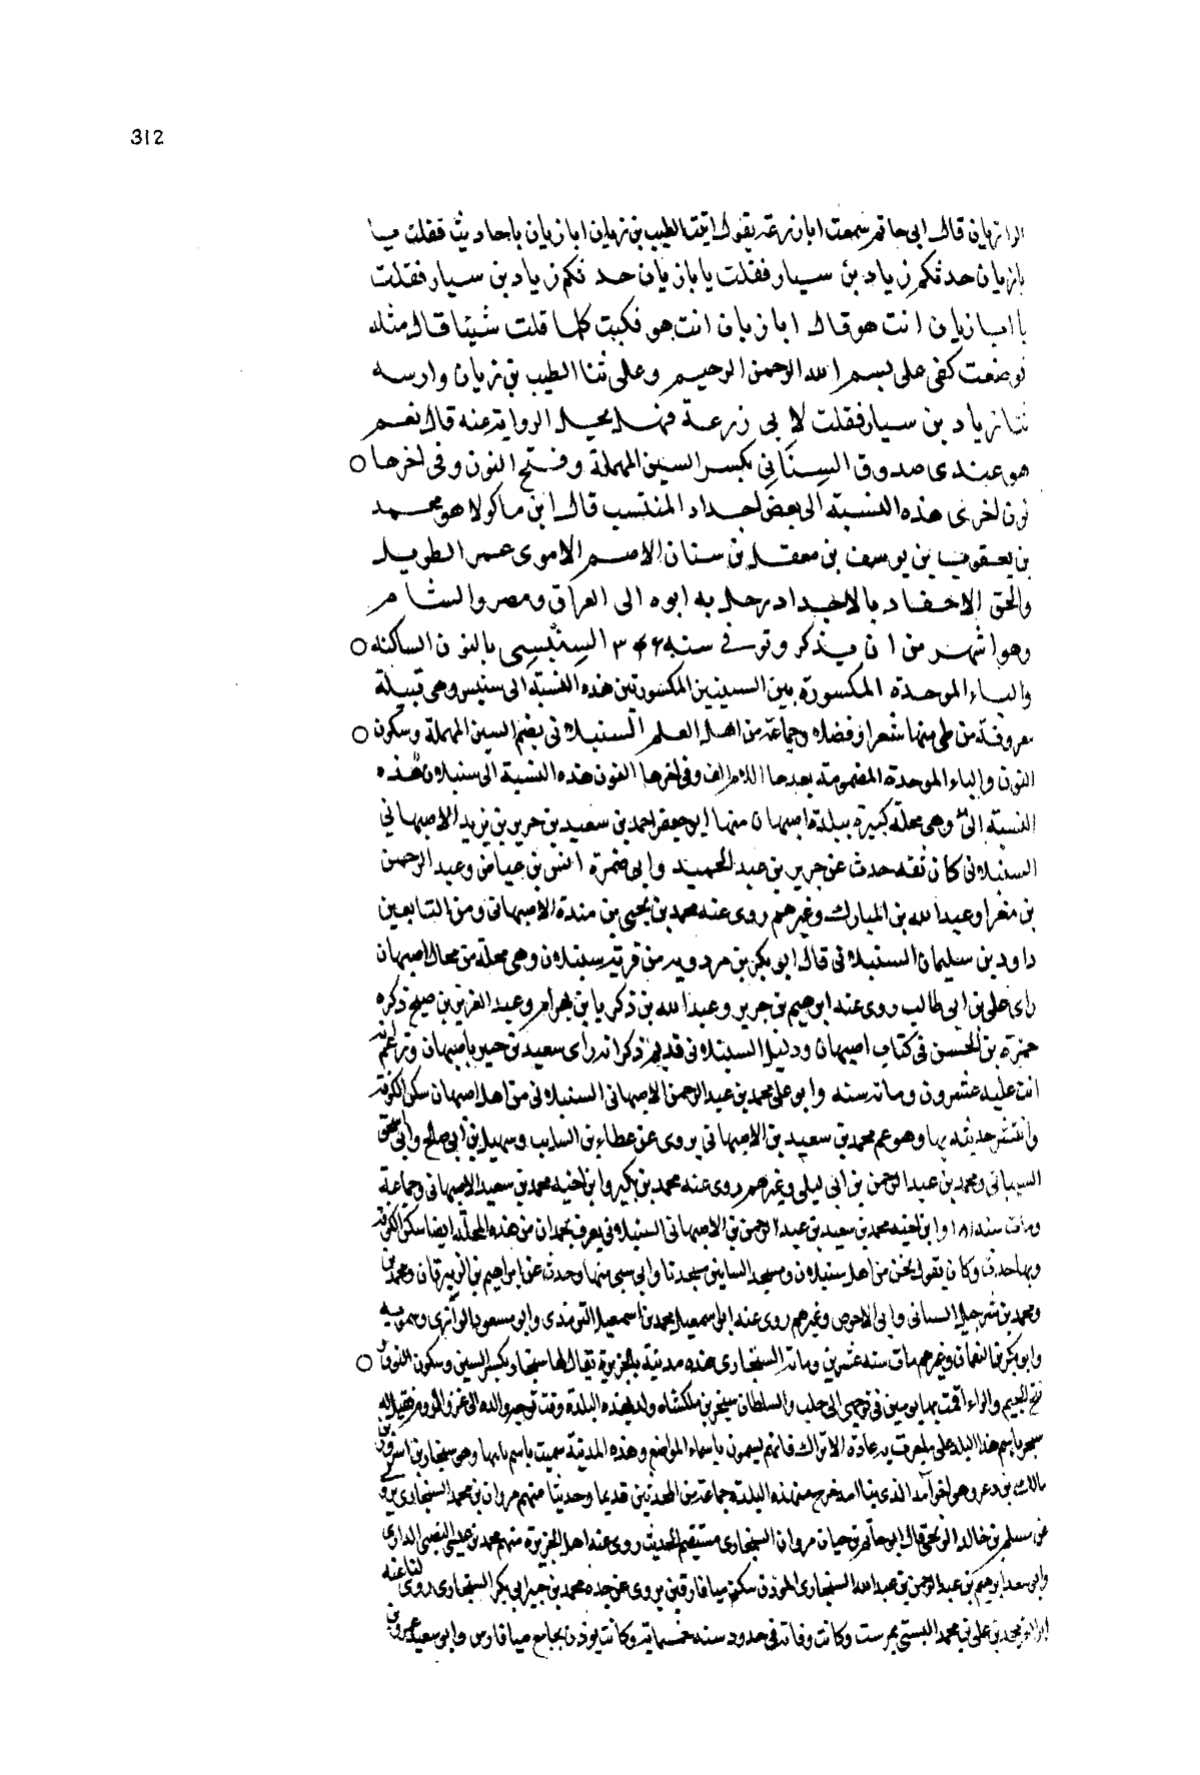 312
الوازيان قال ابى حاتم سمعت ابا زرعة يقول اتيت الطيب بن زيان ابا زيان باحاديث فقلت يا
با زيان حدثكم زياد بن سيار فقلت يا با زيان حدثكم زياد بن سيار فقلت
يا ابا زيان انت هو قال ابا زيان انت هو فكبت كلما قلت شيئا قال مثله
فوضعت كفى على بسم الله الرحمن الرحيم وعلى ثنا الطيب بن زيان وارسه
ثنا زياد بن سيار فقلت لابى زرعة فهل يحيل الرواية عنه قال نعم
هو عندى صدوق السِنَانِي بكسر السين المهملة وفتح النون وفى اخرها
نون اخرى هذه النسبة الى بعض اجداد المنتسب قال ابن ماكولا هو محمد
بن يعقوب بن يوسف بن معقل بن سنان الاصم الاموى عمر الطويل
والحق الاحفاد بالاجداد رحل به ابوه الى العراق ومصر والشام
وهو اشهر من ان يذكر وتوفى سنه ٣٤٦ السِنْبِسِى بالنون الساكنه
والباء الموحدة المكسورة بين السينين المكسورتين هذه النسبة الى سنبس وهى قبيلة
معروفة من طى منها شعرا وفضلاء وجماعة من اهل العلم السنبلانى بضم السين المهملة وسكون
النون والباء الموحدة المضمومة بعدها اللام الف وفى اخرها النون هذه النسبة الى سنبلان هذه
النسبة الى وهى محلة كبيرة ببلدة اصبهان منها ابو جعفر احمد بن سعيد بن جرير بن يزيد الاصبهانى
السنبلانى كان ثقه حدث عن جرير بن عبد الحميد وابى ضمرة انس بن عياض وعبد الرحمن
بن مغرا وعبد الله بن المبارك وغيرهم روى عنه محمد بن يحيى بن مندة الاصبهانى ومن التابعين
داود بن سليمان السنبلانى قال ابو بكر بن مردويه من قرية سنبلان وهى محلة من محال اصبهان
راى على بن ابى طالب روى عنه ابرهيم بن جرير وعبد الله بن زكريا بن بهرام وعبد العزيز بن صبيح ذكره
حمزة بن الحسن فى كتاب اصبهان ودليل السنبلانى قديم ذكر انه راى سعيد بن جبير باصبهان وزعم انه
اتت عليه عشرون وماتة سنه وابو على محمد بن عبد الرحمن الاصبهانى السنبلانى من اهل اصبهان سكن الكوفة
وانتشر حديثه بها وهو عم محمد بن سعيد بن الاصبهانى يروى عن عطاء بن السايب وسهيل بن ابى صالح وابى اسحق
السيبانى ومحمد بن عبد الرحمن بن ابى ليلى وغيرهم روى عنه محمد بن بكير وابن اخيه محمد بن سعيد الاصبهانى وجماعة
ومات سنه ١٨١ وابن اخيه محمد بن سعيد بن عبد الرحمن بن الاصبهانى السنبلانى يعرف بحمدان من هذه المحلة ايضا سكن الكوفة
وبها حدث وكان يقول نحن من اهل سنبلان ومسجد الساين مسجدنا وابى سبى منها وحدث عن ابراهيم بن الزبرقان ومحمد بن
ومحمد بن شرحيل السبانى وابى الاحوص وغيرهم روى عنه ابو اسمعيل محمد بن اسمعيل الترمذى وابو مسعود الرازى وسمويه
وابو بكر بن النعمان وغيرهم مات سنه عشرين وماتة السنجارى هذه مدينة بالجزيرة يقال لها سنجار بكسر السين وسكون النون
فتح الجيم والراء اقمت بها يومين فى توجهى الى حلب والسلطان سنجر بن ملكشاه ولد بهذه البلدة وقت توجه والده الى غزو الروم فقيل له
سنجر باسم هذا البلد على ما عرف به عادة الاتراك فانهم يسمون باسماء المواضع وهذه المدينة سميت باسم بانيها وهى سنجار بن
مالك بن دعر وهو اخو آمد الذى بنا امد خرج من هذه البلدة جماعة من المحدثين قديما وحديثا منهم مروان بن محمد السنجارى يروى
عن مسلم بن خالد الزنجى قال ابو حاتم بن حيان مروان السنجارى مستقيم الحديث روى عنه اهل الجزيرة منهم محمد بن عيسى النصيبى الدارى
وابو سعد ابرهيم بن عبد الرحمن بن عبد الله السنجارى المؤذن سكن ميافارقين يروى عن جده محمد بن ابى بكر السنجارى روى لنا عنه
محمد بن على بن محمد البستى بمرست وكانت وفاته فى حدود سنه خمسماية وكانت يؤذن بجامع ميافارقين وابو سعيد